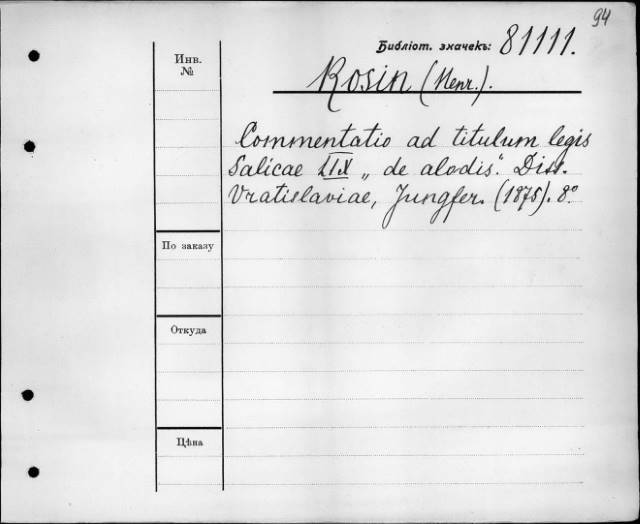 94
Библіот. значекъ: 81111.
Инв.
№
Rosin (Henr.).
Commentatio ad titulum legis
Salicae LIX „de alodis“. Diss.
Vratislaviae, Jungfer. (1875). 8°
По заказу
Откуда
Цѣна